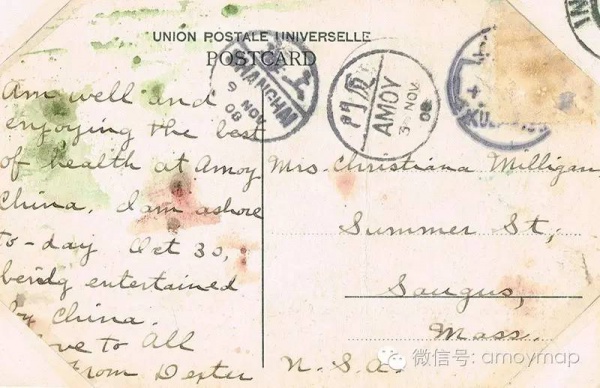 UNION POSTALE UNIVERSELLE
POSTCARD
SHANGHAI
9 NOV
08
廈門
AMOY
3 NOV
08
Am well and
enjoying the best
of health at Amoy
China. I am ashore
to-day Oct 30,
being entertained
by China.
Love to All
From Dexter
Mrs. Christiana Milligan
Summer St,
Saugus,
Mass.
U.S.A.
微信号: amoymap